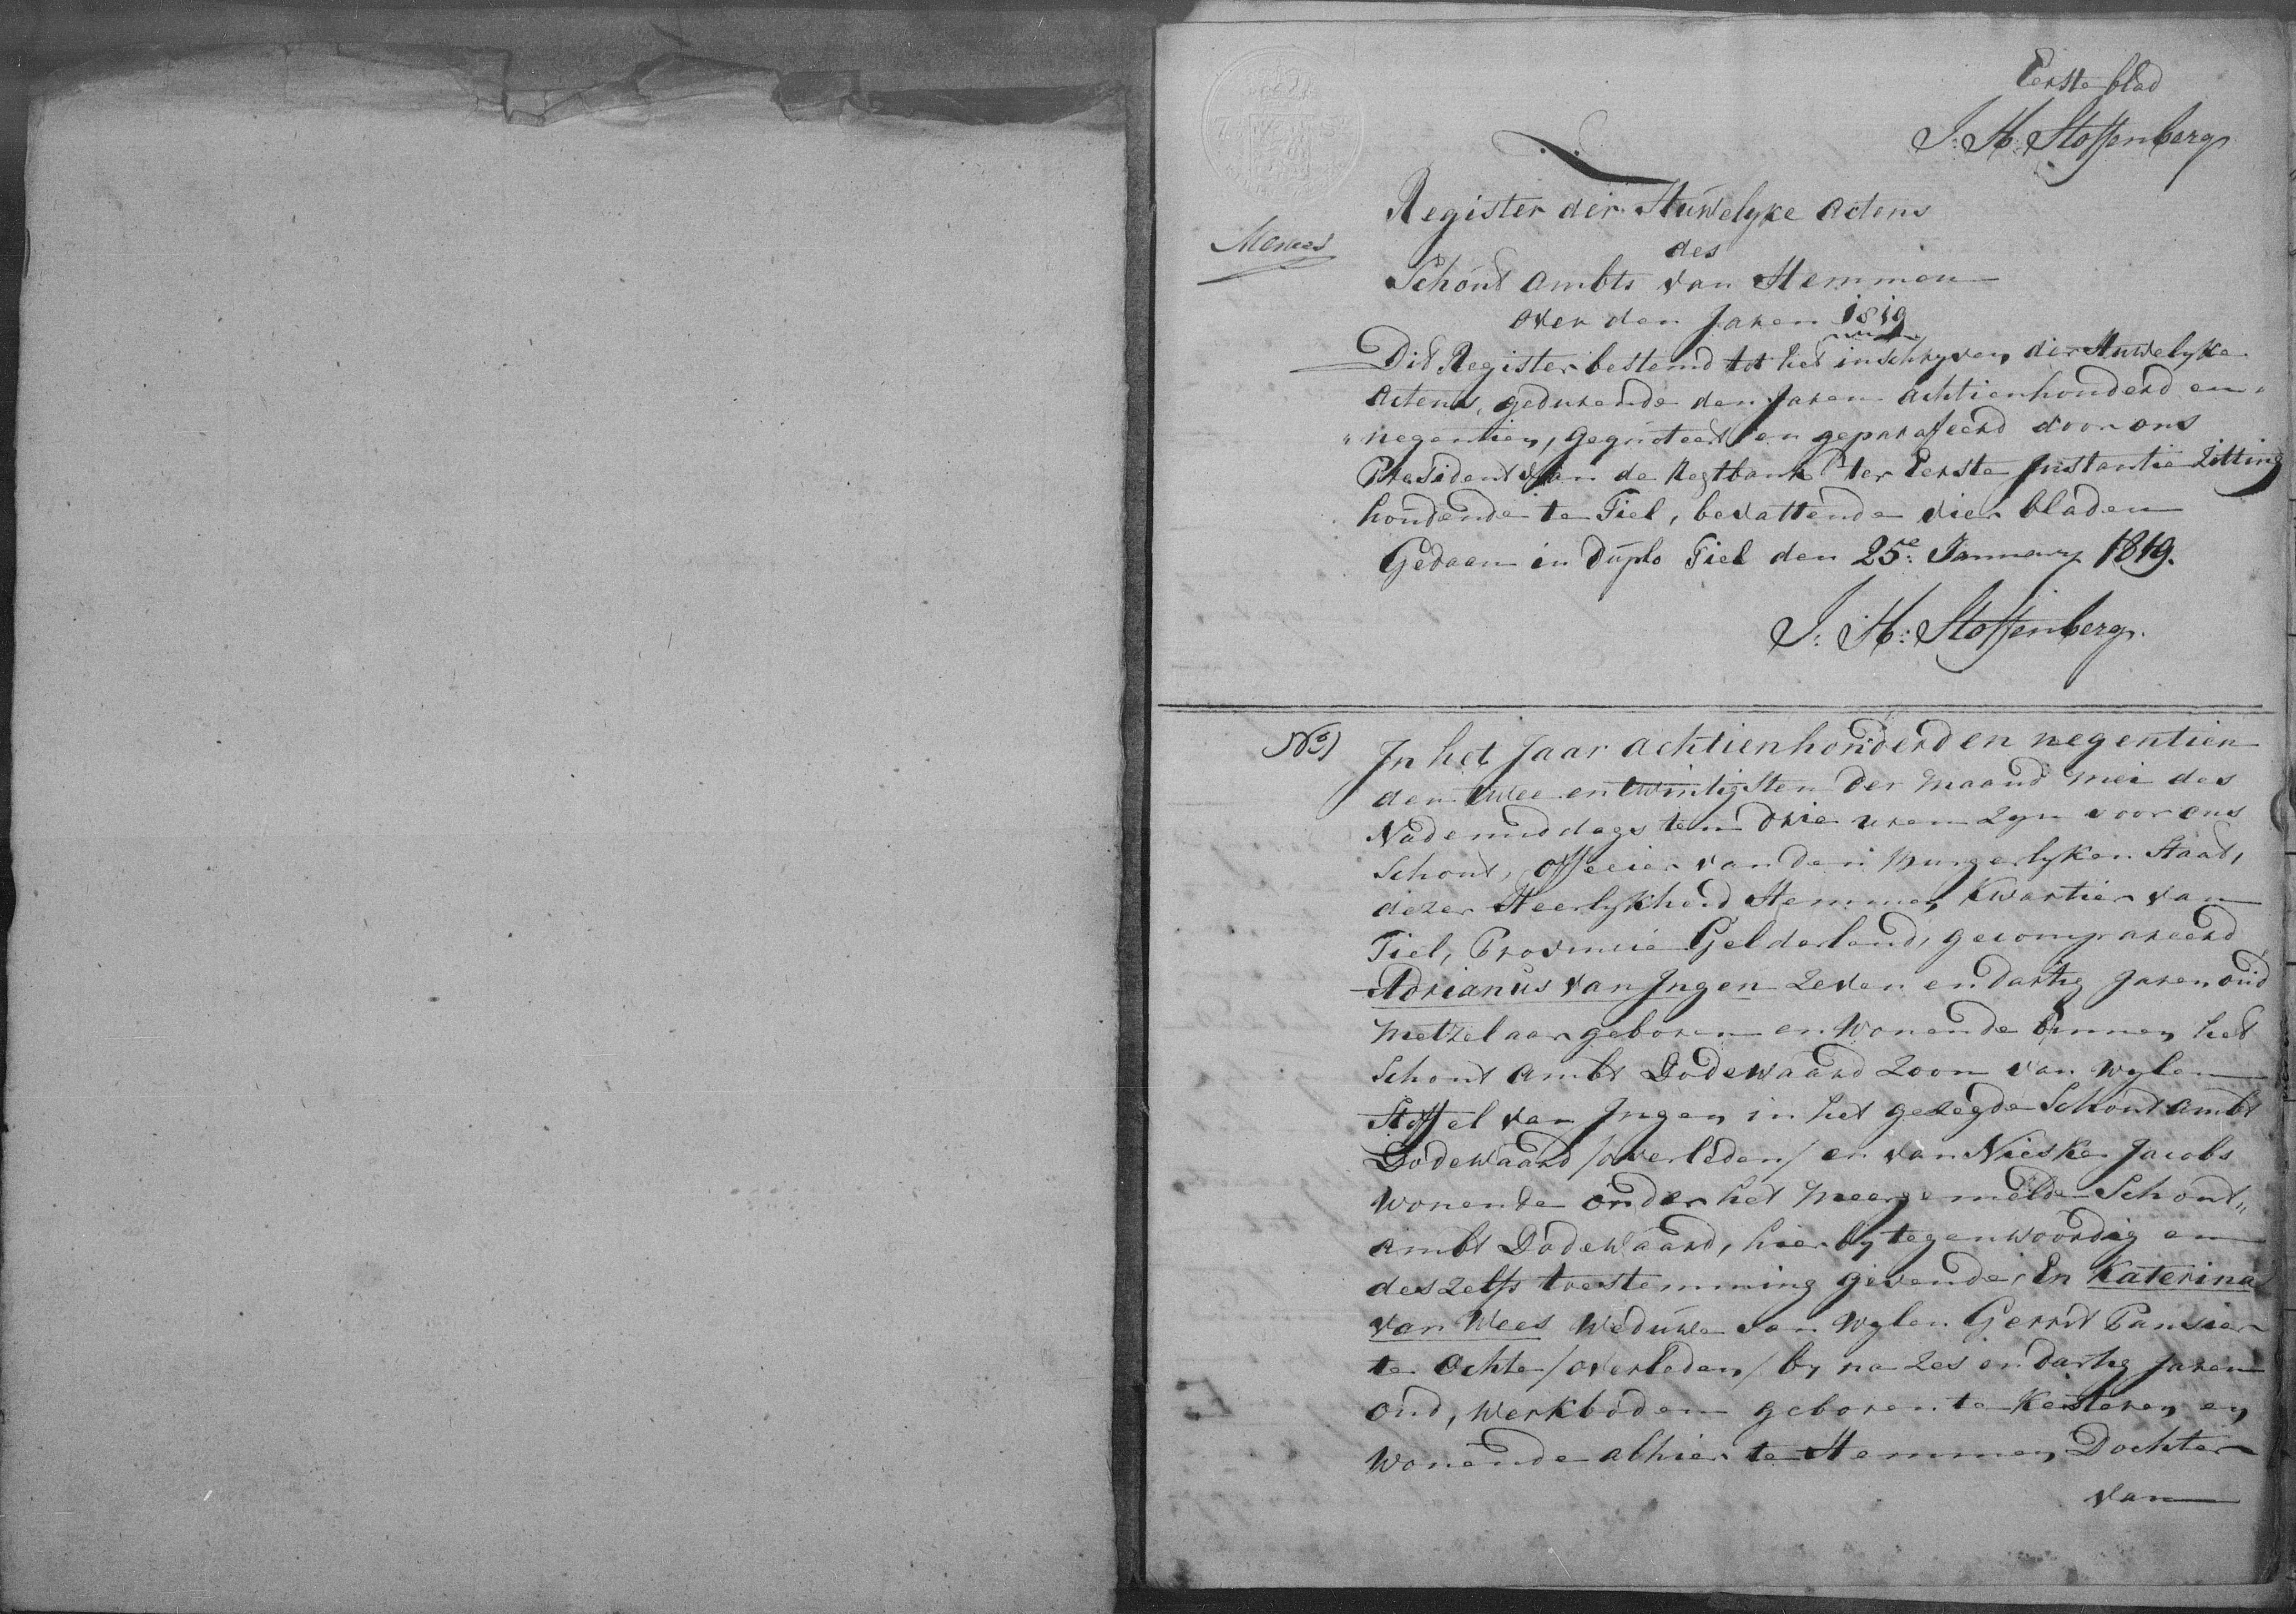 Eerste blad
J: H: Stoffenberg
Register der Huwelyke Actens
des
Schout Ambts van Hemmen
over den Jaren 1819
Dit Register bestemd tot het inschryven der Huwelyke
Actens, gedurende den Jaren achtienhonderd en
negentien, gequoteerd en geparafeerd door ons
President van de Regtbank ter Eerste Instantie Zitting
houdende te Tiel, bevattende vier bladen
Gedaan in Duplo Tiel den 25e January 1819.
J: H: Stoffenberg
No 1
In het Jaar achtienhonderd en negentien
den twee en twintigsten der maand mei des
Nademiddags ten drie uren zyn voor ons
Schout, officier van den Burgerlyken Staat,
dezer Heerlykheid Hemmen, Kwartier van
Tiel, Provincie Gelderland, gecompareerd
Adrianus van Ingen zeven en dartig Jaren oud
metzelaar geboren en wonende binnen het
Schout Ambt Dodewaard zoon van wylen
Stoffel van Ingen, in het gezegde Schout ambt
Dodewaard /overleden/ en van Nieske Jacobs
wonende onder het meergemelde Schout,,
ambt Dodewaard, hierby tegenwoordig en
deszelfs toestemming gevende, En Katerina
van Wees Weduwe van wylen Gerrit Pansier
te Ochte /overleden/ by na zes en dartig Jaren
oud, werkbodem geboren te Kesteren en
wonende alhier te Hemmen, Dochter
van